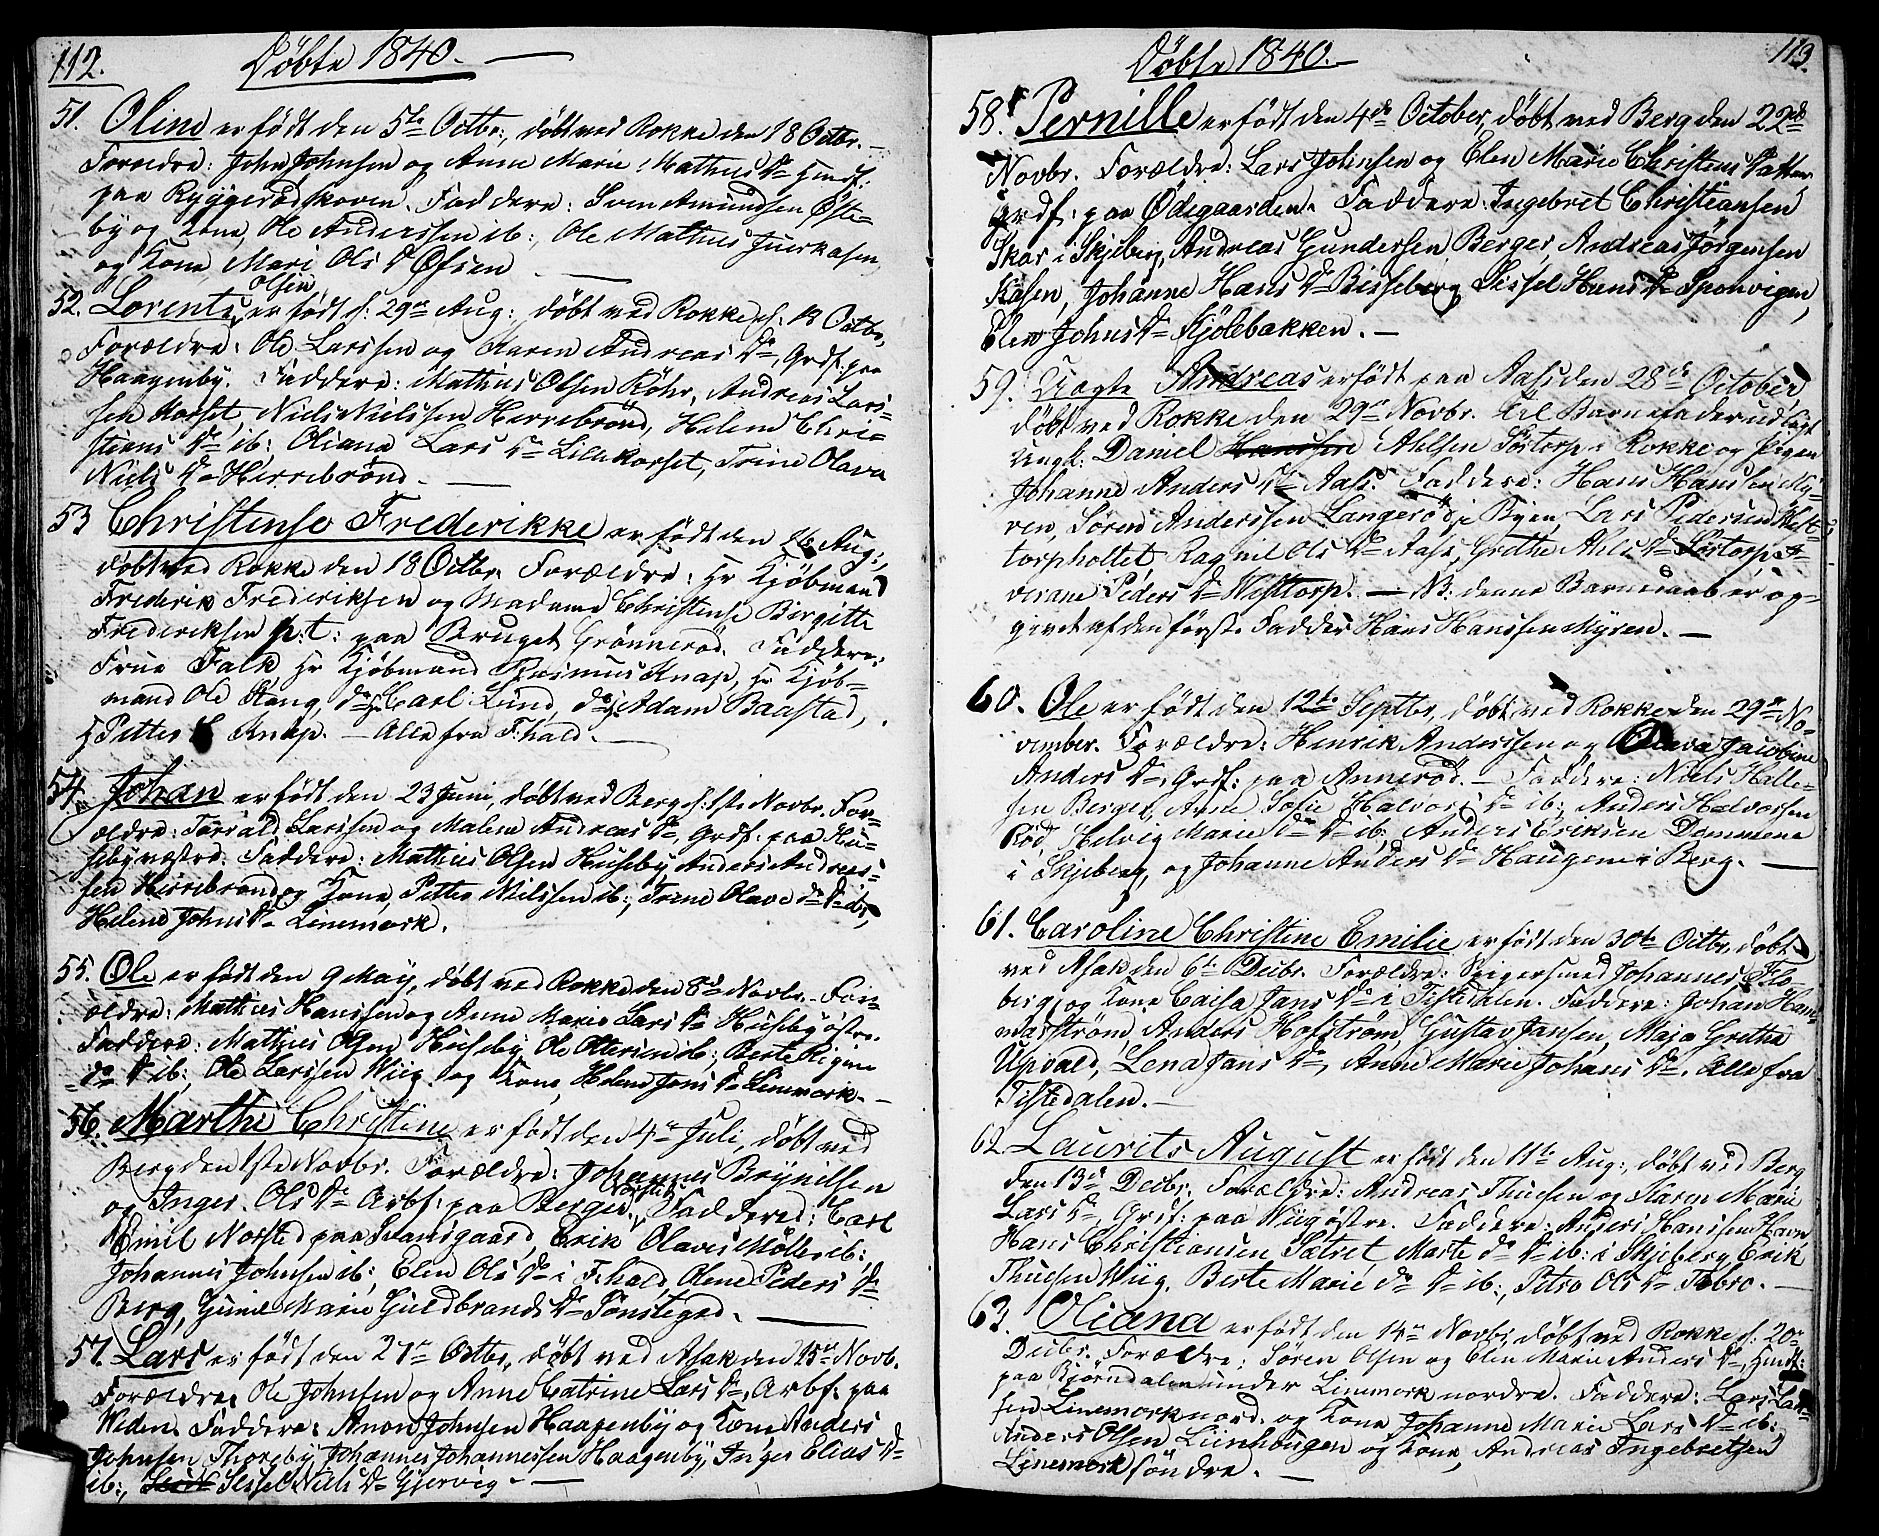 112.
Döbte 1840.
51. Oline er födt den 5te Octbr:, döbt ved Rokke den 18 Octbr. –
Forældre: John Johnsen og Anne Marie Mathis Dr Hmdf:
paa Ryggerödskoven. Faddere: Sven Amundsen Öste-
by og Kone, Ole Anderssen ib:, Ole Mathies Juerkasen
og Kone, Mari Ols Dr Ofsen
Olsen,
52. Lorents, er födt d. 29de Aug:, döbt ved Rokke d. 18 Octbr,
Forældre: Ole Larssen og Karen Andreas Dr, Grdf. paa
Haagenby. Faddere: Mathies Olsen Röhr, Andreas Lars-
sen Korset, Niels Nielssen Herrebrönd, Helene Chri-
stians Dr ib: Oliana Lars Dr Lillekorset, Trine Olava
Niels Dr Herrebrönd.
53 Christense Frederikke er födt den 16 Aug:,
döbt ved Rokke den 18 Octbr. Forældre: Hr Kjöbmand
Frederik Frederiksen og Madame Christense Bergitte
Frederiksen p:t: paa Bruget Grönneröd. Faddere:
Frue Falk Hr Kjöbmand Rasmus Knap, Hr Kjöb-
mand Ole Stang, do Hr Carl Lund, do Hr Adam Baastad,
H Petter Knap. – Alle fra Fr:hald. –
54. Johan er födt den 23 Juni, döbt ved Berg d: 1ste Novbr. For-
ældre: Torvald Larssen og Malene Andreas Dr Grdf: paa Hu-
sebyvæstre. Faddere: Mathies Olsen Huseby, Anders Andreas-
sen Herrebrönd og Kone, Petter Nielssen ib:, Trine Olave do Dr ib:,
Helene Johns Dr Linemork.
55. Ole er födt den 9 May, döbt ved Rokke den 8de Novbr. – For-
ældre: Mathies Hanssen og Anne Marie Lars Dr Huseby östre.
Faddere: Mathies Olsen Huseby, Ole Ottersen ib:, Berte Rigine
do Dr ib:, Ole Larssen Wiig og Kone, Helene Jens Dr Linemork. –
56. Marthe Christine er födt den 4de Juli, döbt ved
Berg den 1ste Novbr. Forældre: Johannes Brynilsen
og Inger Ols Dr Arbf: paa Berger. Faddere: Carl
Emil Norsted paa Framsgaard, Erik Olaves Möller ib:
Johannes Johnsen ib:, Elen Ols Dr i Fr:hald, Olene Peders Dr
Berg, Gunil Marie Guldbrands Dr Sönsteged. –
57. Lars er födt den 27de Octbr, döbt ved Asak den 15de Novb.
Forældre, Ole Johnsen og Anne Catrine Lars Dr, Arbf: paa
Weden. Faddere: Anon Johnsen Haagenby og Kone Anders
Johnsen Thoreby, Johannes Johannessen Haagenby, Inger Elias Dr
ib:, Sissel Niels Dr Gjervig. –
113.
Döbte 1840. –
58. Pernille er födt den 4de October, döbt ved Berg den 22de
Novbr. Forældre: Lars Johnsen og Elen Marie Christens Datter
Grdf: paa Ödegaarden. Faddere: Ingebret Christiansen
Skar i Skjeberg, Andreas Gundersen Berger, Andreas Jörgensen
Kasen, Johanne Hans Dr Bisseberg, Sissel Hans Dr Sponvigen,
Elen Johns Dr Skjolebakken. –
59. Uægte Andreas er födt paa Aas den 28de October,
döbt ved Rokke den 29de Novbr. Til Barnefader udlagt
Ungk: Daniel Ahlsen Sörtorp i Rokke og Pigen
Johanne Anders Dr Aas. Faddere: Hans Hanssen My-
ren, Sören Anderssen Langeröd i Byen, Lars Pedersen West-
torpholtet, Ragnil Ols Dr Aas, Grethe Ahls Dr Sörtorp A-
verane Peders Dr Westtorp. – NB: denne Barnedaab er op-
givet af den förste Fadder Hans Hanssen Myren. –
60. Ole er födt den 12te Septbr, döbt ved Rokke den 29de No-
vember. Forældre: Henrik Anderssen og Olava Jacobine
Anders Dr, Grdf: paa Anneröd. – Faddere: Niels Helle-
sen Berger, Anne Sofie Halvors Dr ib: Anders Halvorssen
Röd, Helvig Marie do Dr ib: Anders Eriksen Dammene
i Skjeberg, og Johanne Anders Dr Haugene i Berg. –
61. Caroline Christine Emilie er födt den 30te Octbr, döbt
ved Asak den 6te Decbr. Forældre: Spigersmed Johannes Flo-
berg og Kone Caisa Jans Dr i Tistedalen. Faddere: Johan Ham-
marström, Anders Hofström, Gustav Jansen, Maja Grethe
Upvald, Lena Jans Dr, Anne Marie Johans Dr. Alle fra
Tistedalen. –
62. Laurits August er födt den 11te Aug:, döbt ved Berg
den 13de Decbr. Forældre: Andreas Thuesen og Karen Marie
Lars Dr, Grdf: paa Wiig östre. Faddere: Anders Hanssen Havn
Hans Christiansen Sætret, Marte do Dr ib: i Skjeberg, Erik
Thuesen Wiig, Berte Marie do Dr ib:, Petro Ols Dr Tobro. –
63. Oliana er födt den 14de Novbr, döbt ved Rokke d. 20de
Decbr. Forældre: Sören Olsen og Elen Marie Anders Dr, Hmdf:
paa Björndalen under Linemork nordre. Faddere: Lars Lar-
sen Linemork nord. og Kone Johanne Marie Lars Dr ib:,
Anders Olsen Liinhougen og Kone, Andreas Ingebretsen
Linemork söndre. –